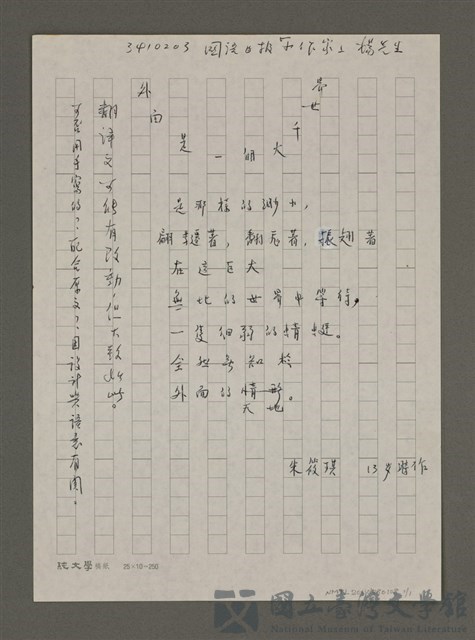 3410203 國語日報 楊先生
外面是一個大千世界
是那樣的渺小,
翩躚著,翻飛著,振翅著
在這巨大
無比的世界中等待,
一隻細弱的蜻蜓。
全然無知於
外面的情形
天地。
朱筱琪 13岁時作
翻译文可能有改動,但大致如此。
可否用手寫的,配合原文,因設計與語意有関。
純文學稿紙 25×10=250
國立臺灣文學館
National Museum of Taiwan Literature